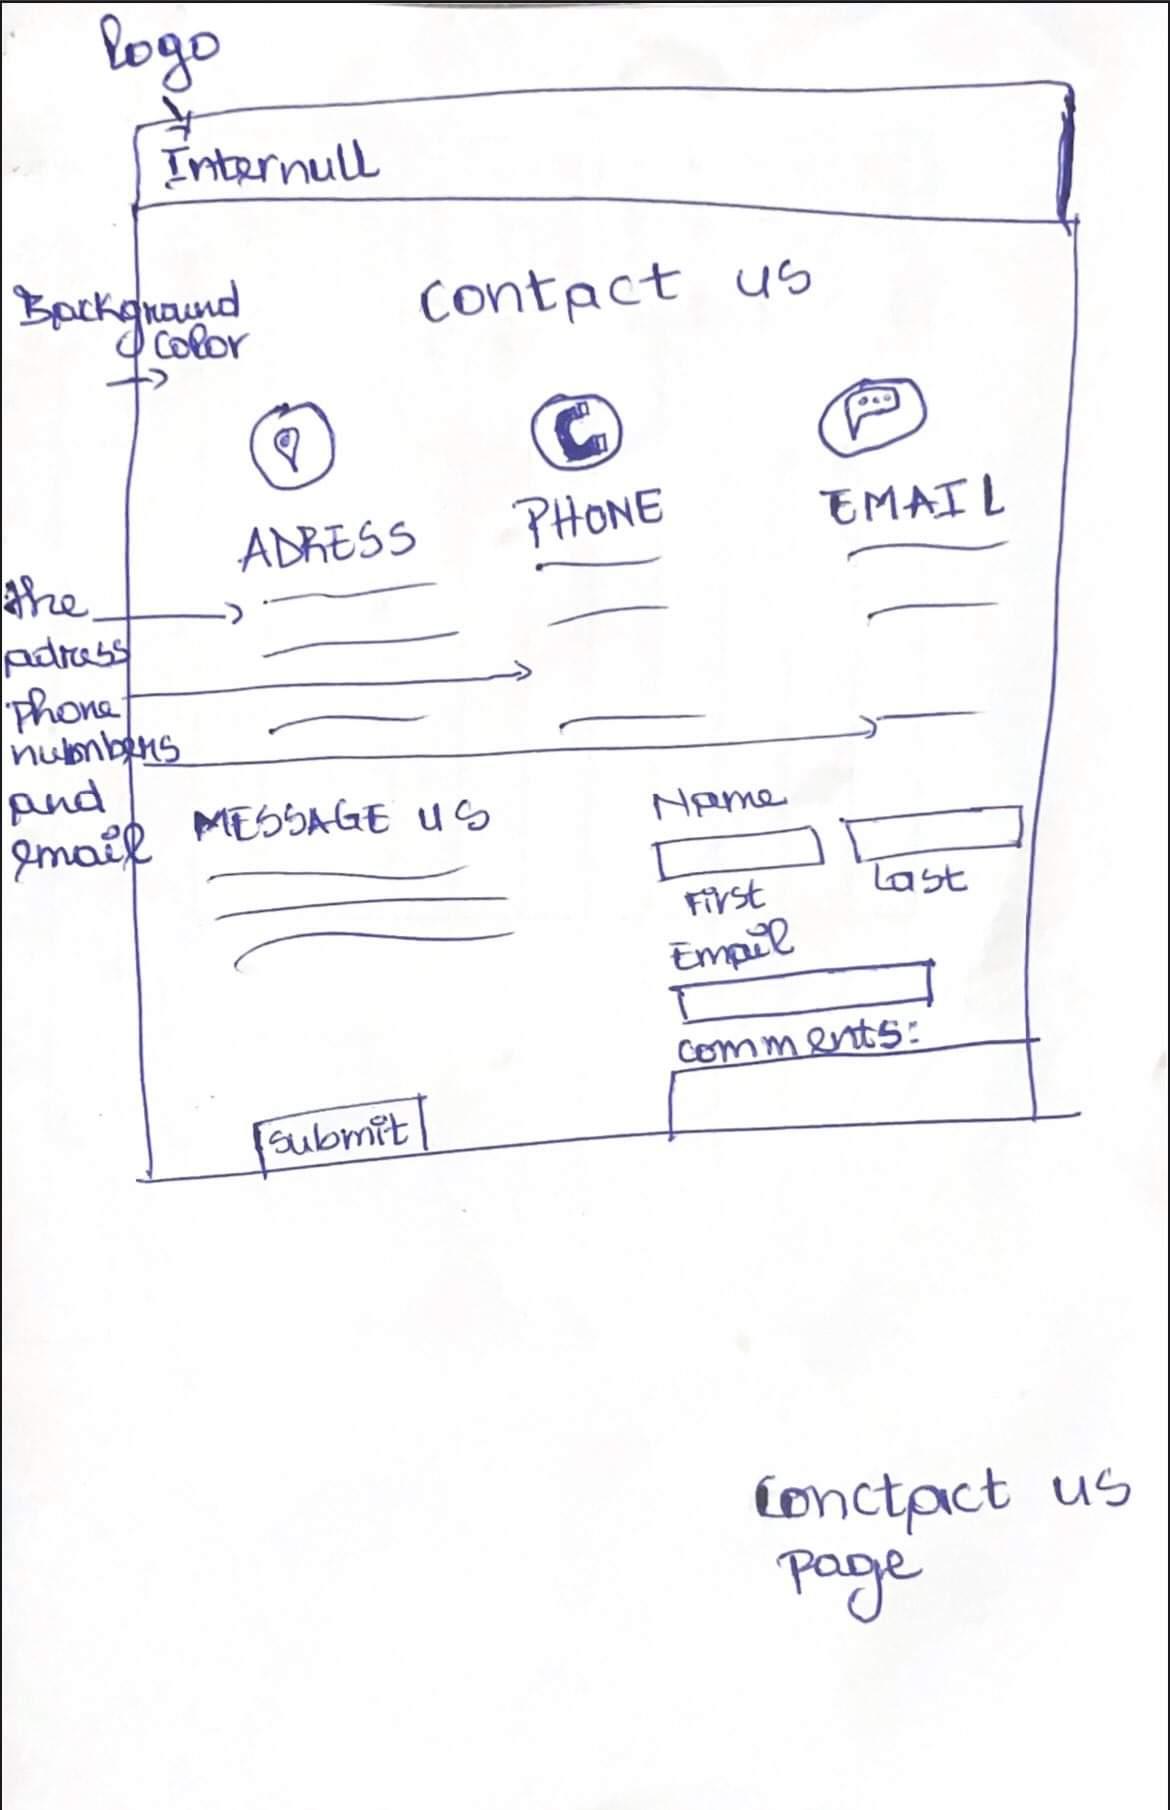 Logo
Internull
Contact us
Background
color
ADRESS
PHONE
EMAIL
the
adress
Phone
numbers
and
email
MESSAGE US
Name
First
Last
Email
comments:
submit
Conctact us
page